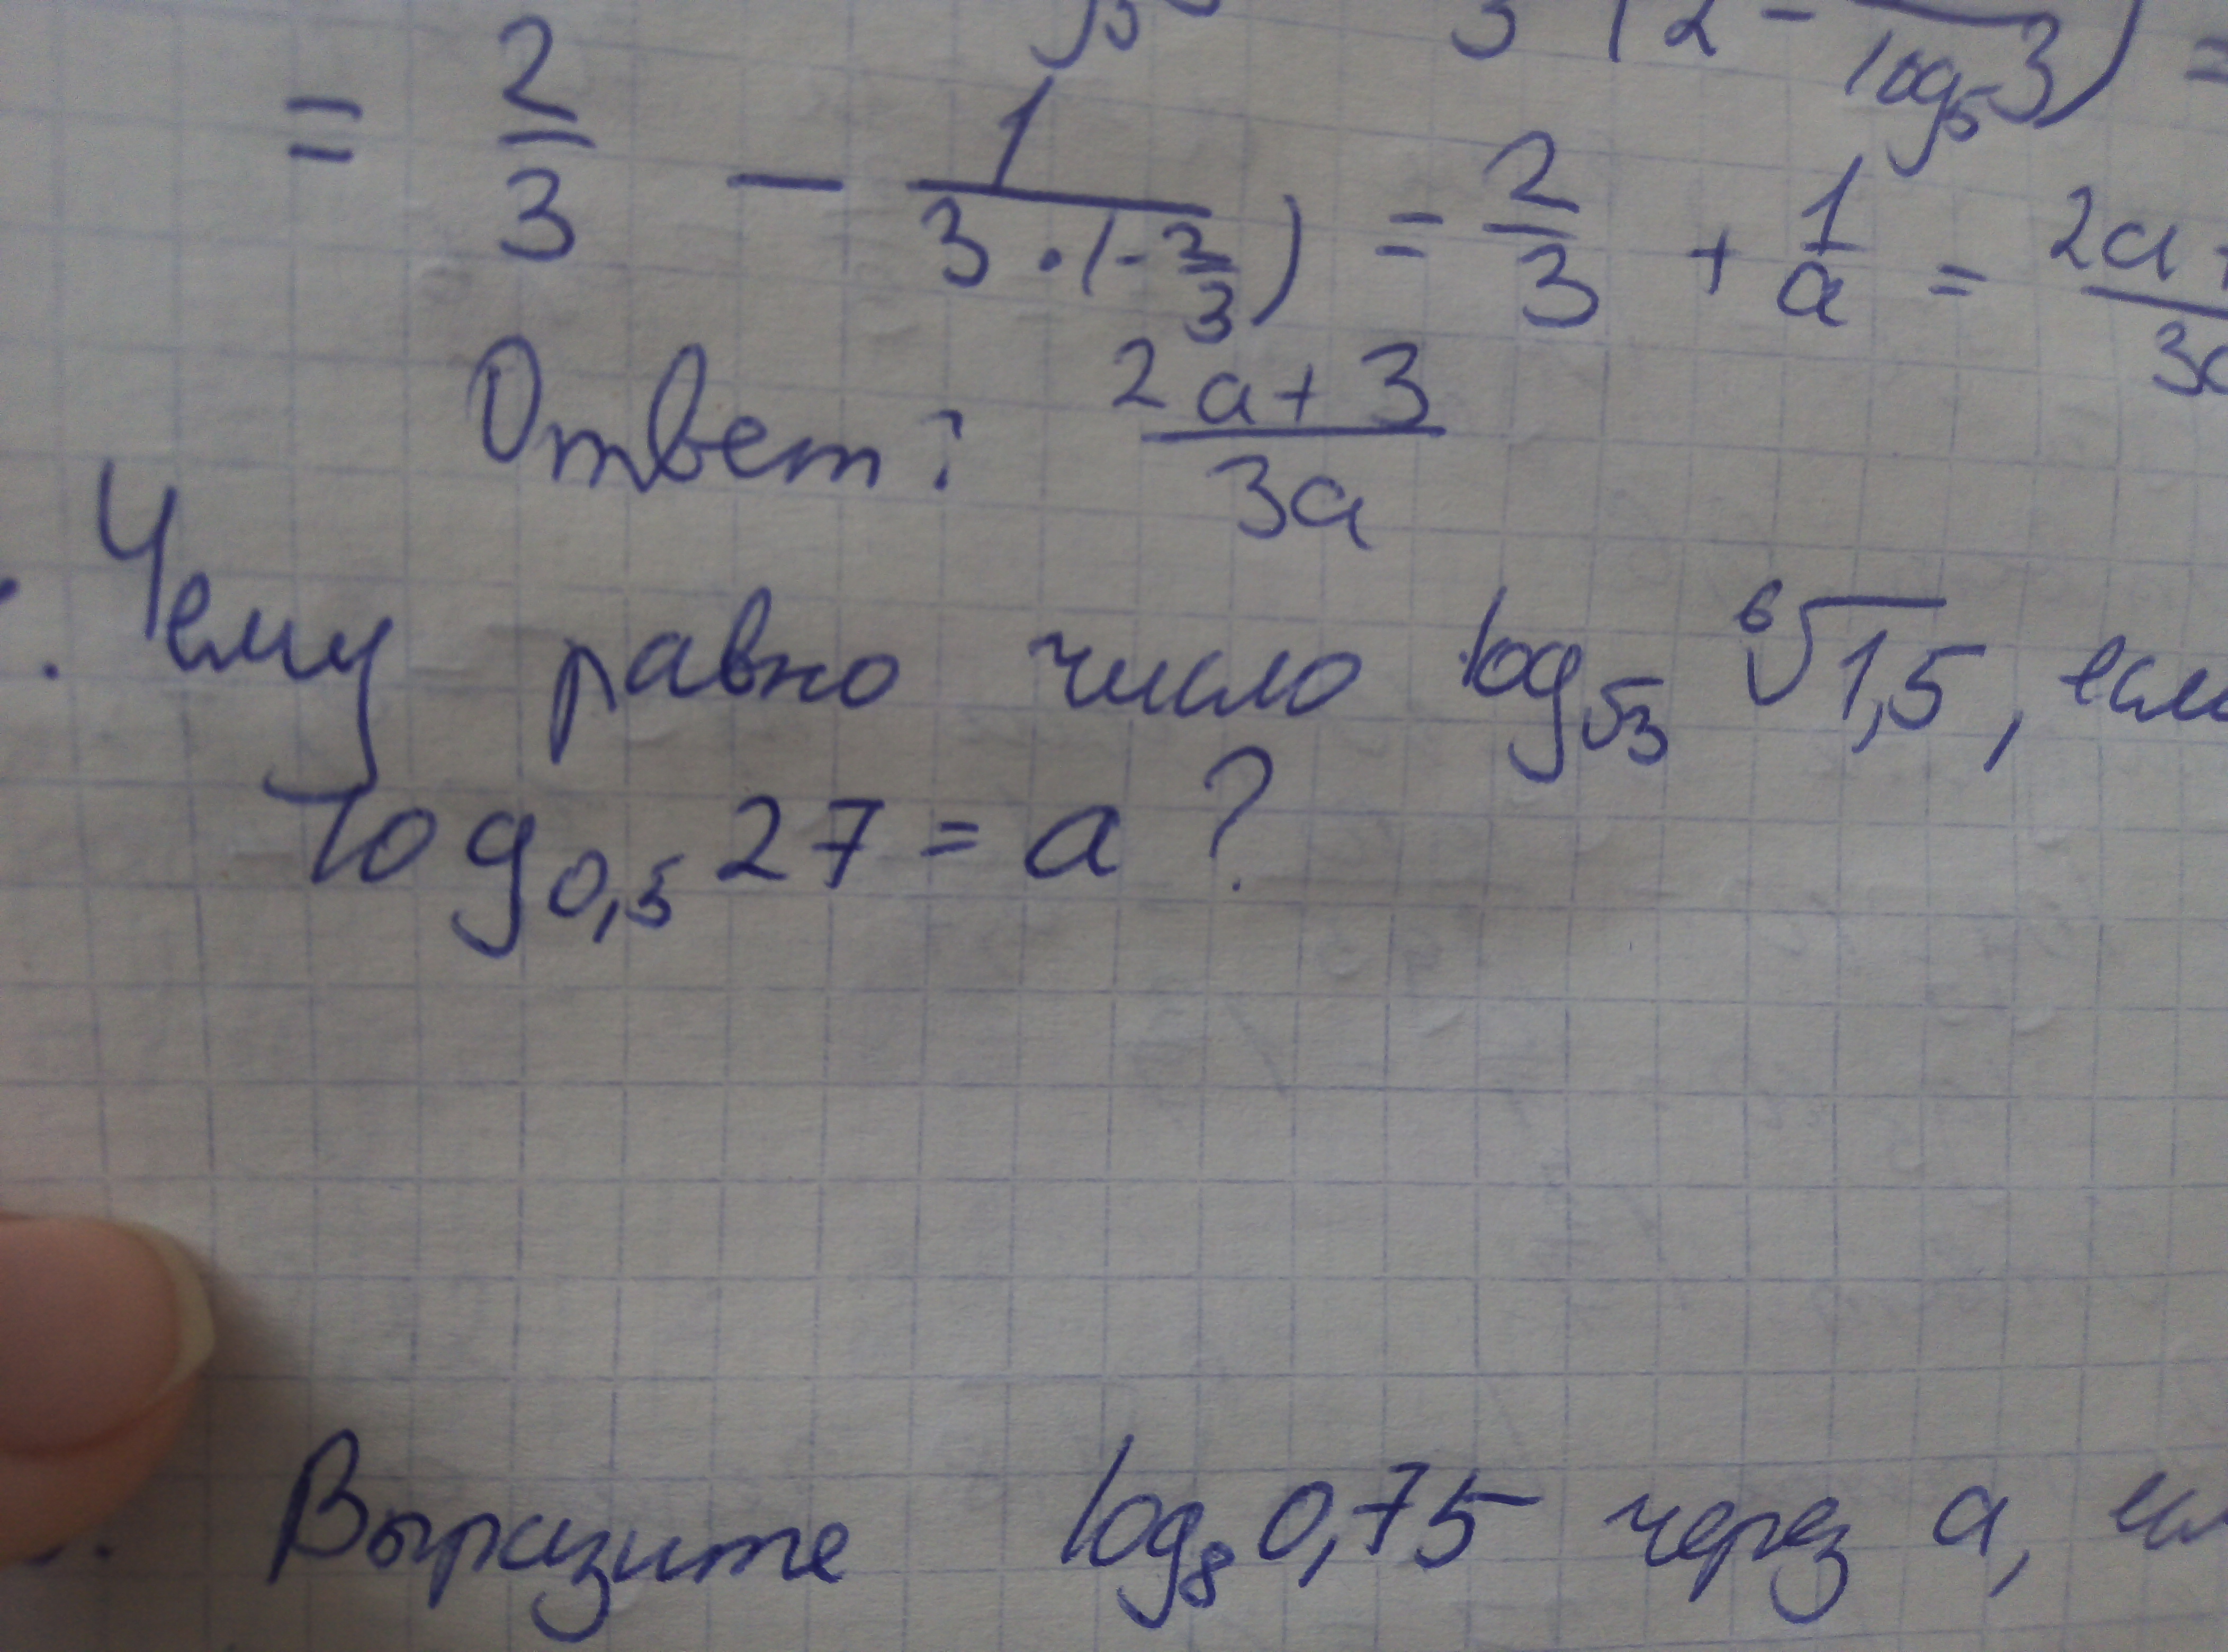 3 (2 - / log₅3) =
= 2/3 - 1/(3·(-2/3)) = 2/3 + 1/a = 2a+/3a
Ответ: (2a+3)/3a
. Чему равно число log_√3 ⁶√1,5, если
log₀,₅ 27 = a ?
. Выразите log₈ 0,75 через a,